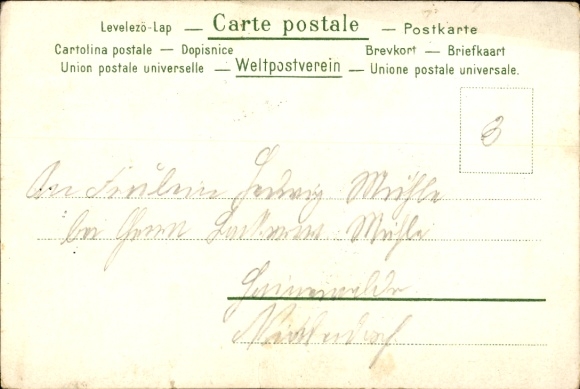 Levelező-Lap — Carte postale — Postkarte
Cartolina postale — Dopisnice Brevkort — Briefkaart
Union postale universelle — Weltpostverein — Unione postale universale.
3
An Fräulein Hedwig Mühle
bei Herrn Mühle
Hainewalde